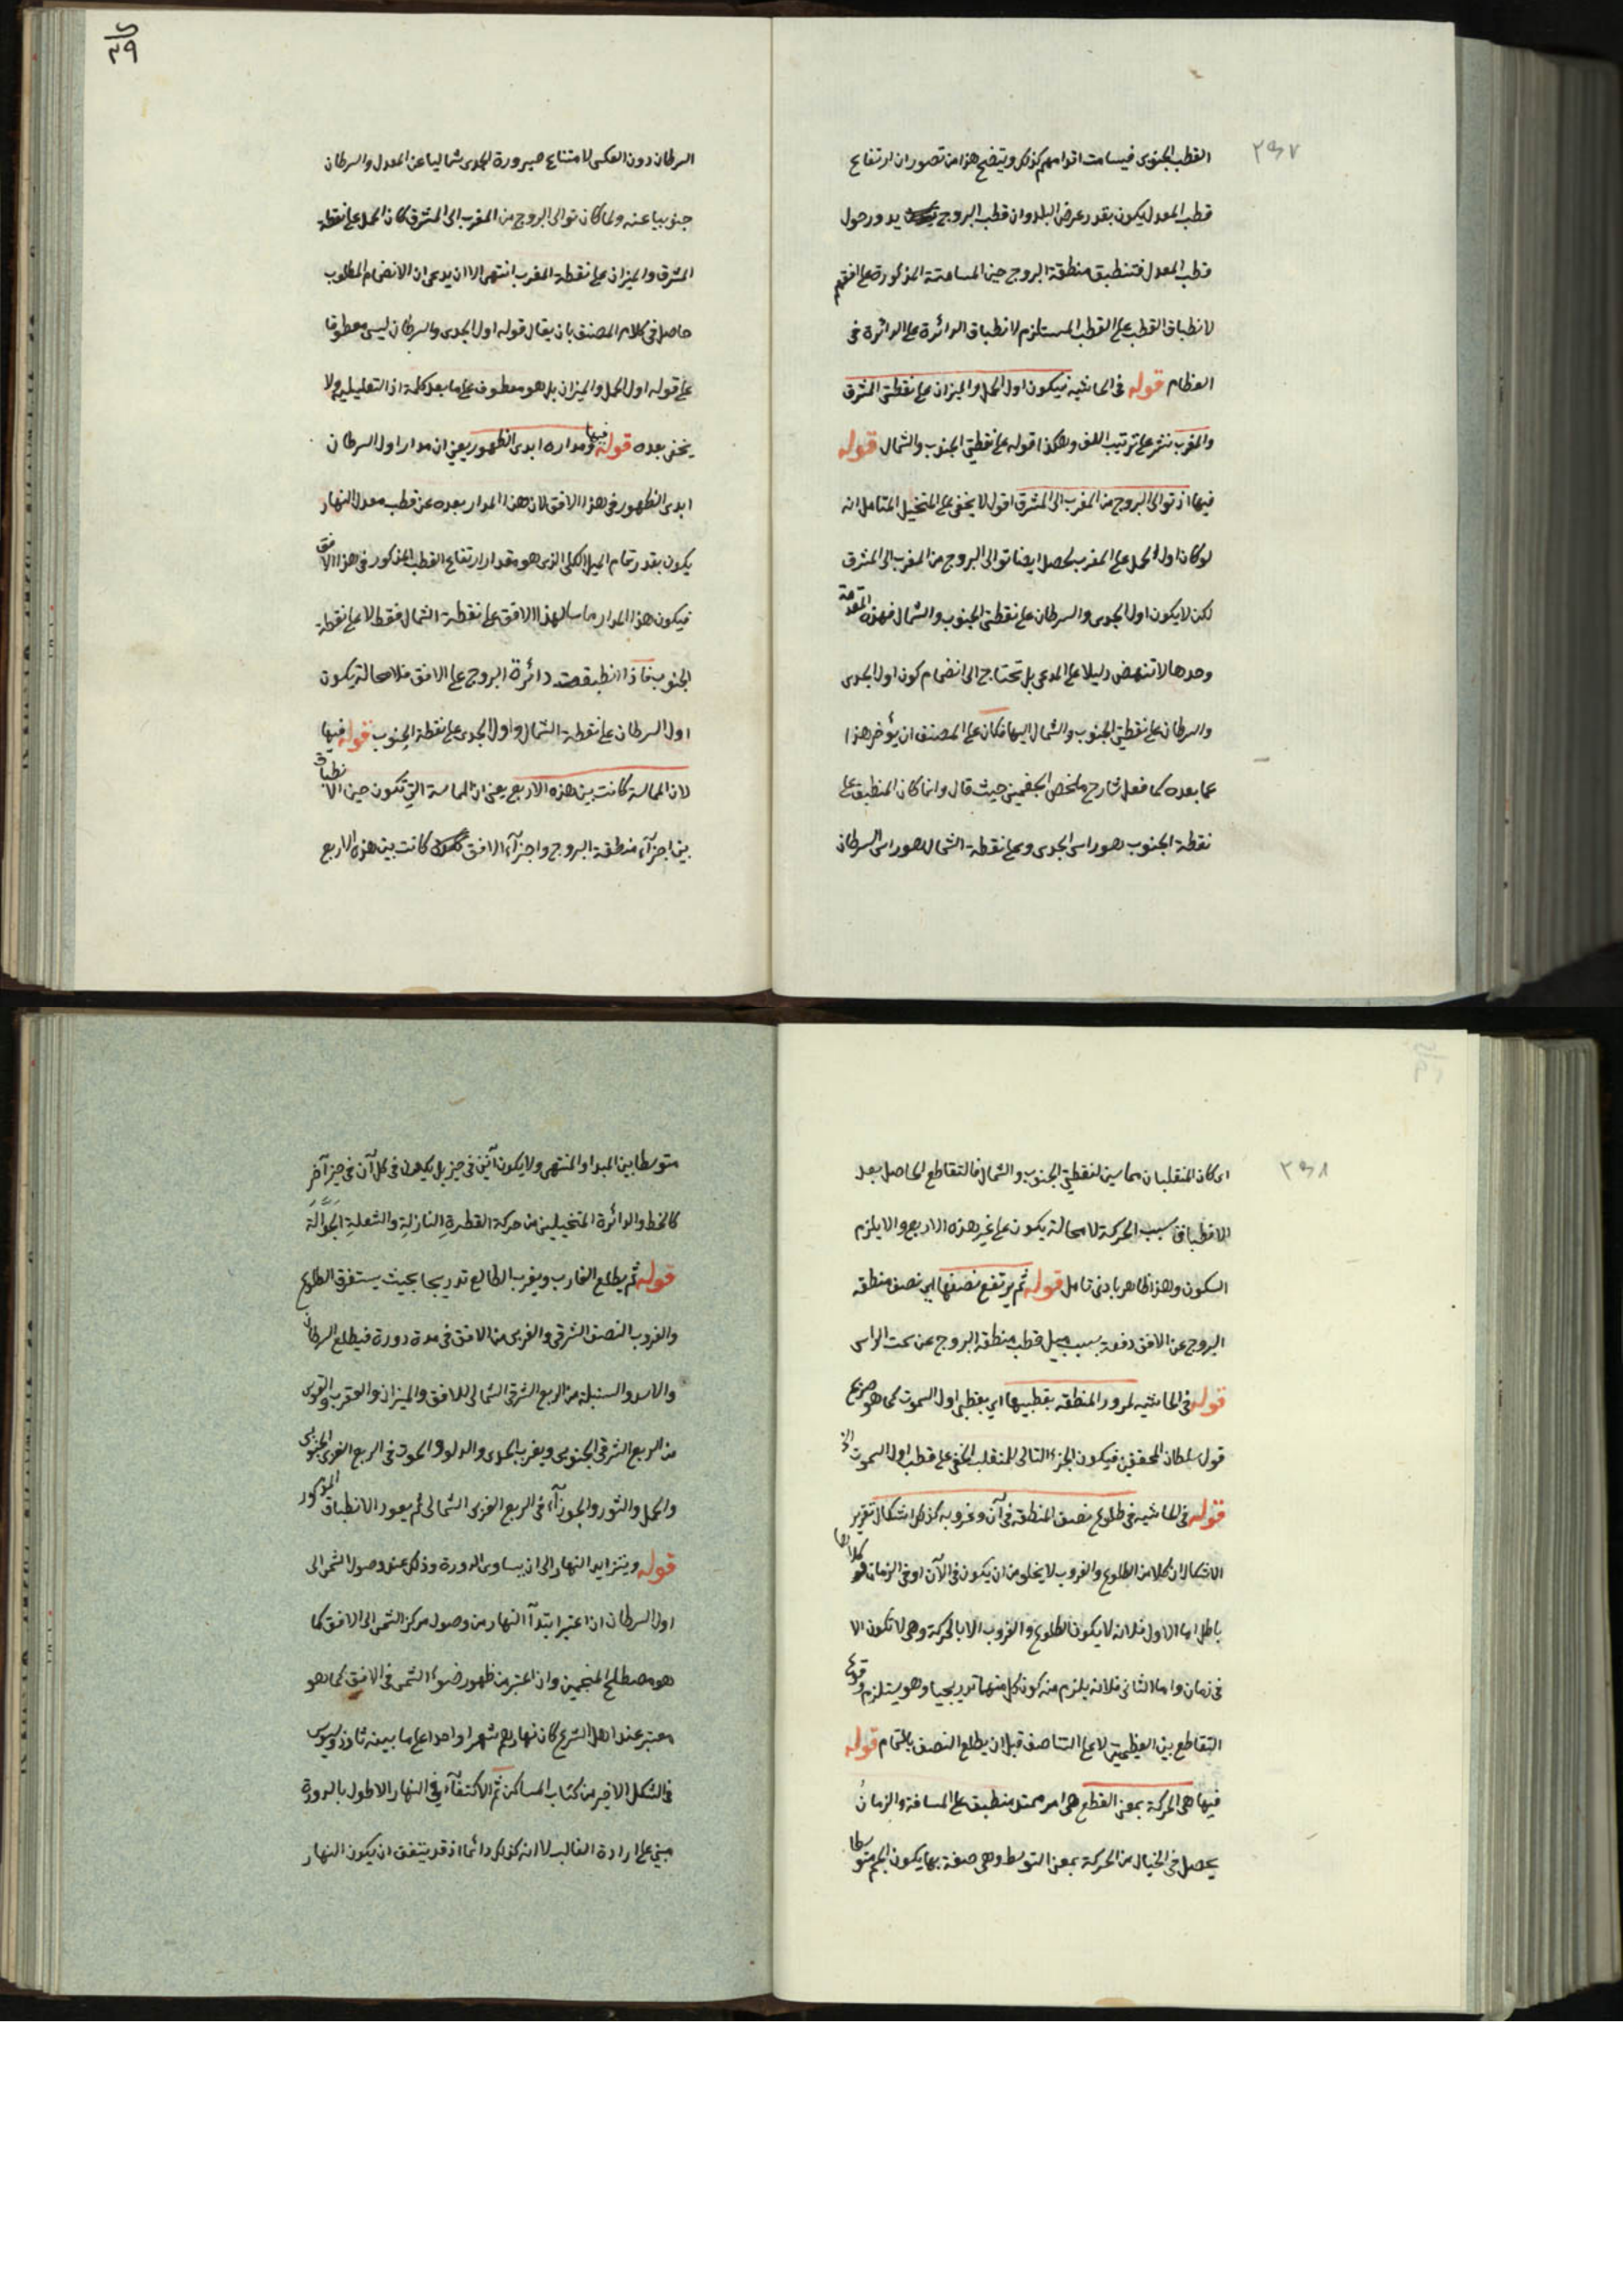 ٣٩٧
القطب الجنوبى فيسامت اقدامهم كذلك ويتضح هذا من تصور ان ارتفاع
قطب المعدل يكون بقدر عرض البلد وان قطب البروج يدور حول
قطب المعدل فتنطبق منطقة البروج حين المسامتة المذكورة على افقهم
لانطباق القطب على القطب المستلزم لانطباق الدائرة على الدائرة فى
العظام قوله فى الحاشيه فيكون اول الحمل والميزان على نقطتى المشرق
والمغرب نشر على ترتيب اللف وهكذا قوله على نقطتى الجنوب والشمال قوله
فيها اذ توالى البروج من المغرب الى المشرق اقول لا يخفى على المتخيل المتامل انه
لو كان اول الحمل على المغرب يحصل ايضا توالى البروج من المغرب الى المشرق
لكن لا يكون اول الجدى والسرطان على نقطتى الجنوب والشمال فهذه المقدمة
وحدها لا تنهض دليلا على المدعى بل تحتاج الى انضمام كون اول الجدى
والسرطان على نقطتى الجنوب والشمال اليها فكان على المصنف ان يؤخر هذا
عما بعده كما فعل شارح ملخص الجغمينى حيث قال وانما كان المنطبق على
نقطة الجنوب هو راس الجدى وعلى نقطة الشمال هو راس السرطان
٣٩
السرطان دون العكس لامتناع صيرورة الجدى شماليا عن المعدل والسرطان
جنوبيا عنه ولما كان توالى البروج من المغرب الى المشرق كان الحمل على نقطة
المشرق والميزان على نقطة المغرب انتهى الا ان يدعى ان الانضمام المطلوب
حاصل فى كلام المصنف بان يقال قوله اول الجدى والسرطان ليس معطوفا
على قوله اول الحمل والميزان بل هو معطوف على ما بعد كلمة اذ التعليلية ولا
يخفى بعده قوله فيها ومداره ابدى الظهور يعنى ان مدار اول السرطان
ابدى الظهور فى هذا الافق لان هذا المدار بعده عن قطب معدل النهار
يكون بقدر تمام الميل الكلى الذى هو مقدار ارتفاع القطب المذكور فى هذا الافق
فيكون هذا المدار مماسا لهذا الافق على نقطة الشمال فقط لا على نقطة
الجنوب فاذا انطبقت دائرة البروج على الافق فلا محالة يكون
اول السرطان على نقطة الشمال واول الجدى على نقطة الجنوب قوله فيها
لان المماسة كانت بين هذه الاربع يعنى ان المماسة التى تكون حين الانطباق
بين اجزاء منطقة البروج واجزاء الافق كانت بين هذه الاربع
٣٩٨
اى كان المنقلبان مماسين لنقطتى الجنوب والشمال فالتقاطع الحاصل بعد
الانطباق بسبب الحركة لا محالة يكون على غير هذه الاربع والا يلزم
السكون وهذا ظاهر بادنى تامل قوله ثم يرتفع نصفها اى نصف منطقة
البروج عن الافق دفعة بسبب ميل قطب منطقة البروج عن سمت الراس
قوله فى الحاشيه لمرور المنطقه بقطبيها اى بقطبى اول السموت كما هو صريح
قول سلطان المحققين فيكون الجزء التالى للمنقلب الخفى على قطب اول السموت
قوله فى الحاشيه فى طلوع نصف المنطقه فى آن وغروبه كذلك اشكال تقرير
الاشكال ان كلا من الطلوع والغروب لا يخلو من ان يكون فى الآن او فى الزمان كلاهما
باطل اما الاول فلانه لا يكون الطلوع والغروب الا بالحركة وهى لا تكون الا
فى زمان واما الثانى فلانه يلزم منه كون كل منهما تدريجيا وهو يستلزم وقوع
التقاطع بين العظيمتين لا على التناصف قبل ان يطلع النصف بالتمام قوله
فيها هى الحركة بمعنى القطع هى امر ممتد منطبق على المسافة والزمان
يحصل فى الخيال من الحركة بمعنى التوسط وهى صفة بها يكون الجسم متوسطا
متوسطا بين المبدا والمنتهى ولا يكون آنين فى حيز بل يكون فى كل آن فى حيز آخر
كالخط والدائرة المتخيلين من حركة القطرة النازلة والشعلة الجوالة
قوله ثم يطلع الغارب ويغرب الطالع تدريجا بحيث يستغرق الطلوع
والغروب النصف الشرقى والغربى من الافق فى مدة دورة فيطلع السرطان
والاسد والسنبلة من الربع الشرقى الشمالى للافق والميزان والعقرب والقوس
من الربع الشرقى الجنوبى ويغرب الجدى والدلو والحوت فى الربع الغربى الجنوبى
والحمل والثور والجوزاء فى الربع الغربى الشمالى ثم يعود الانطباق المذكور
قوله ويتزايد النهار الى ان يساوى الدورة وذلك عند وصول الشمس الى
اول السرطان ان اعتبر ابتداء النهار من وصول مركز الشمس الى الافق كما
هو مصطلح المنجمين وان اعتبر من ظهور ضوء الشمس فى الافق كما هو
معتبر عند اهل الشرع كان نهارهم شهرا واحدا على ما بينه ثاوذوسيوس
فى الشكل الاخير من كتاب المساكن ثم الاكتفاء فى النهار الاطول بالدورة
مبنى على ارادة الغالب لا انه كذلك دائما اذ قد يتفق ان يكون النهار